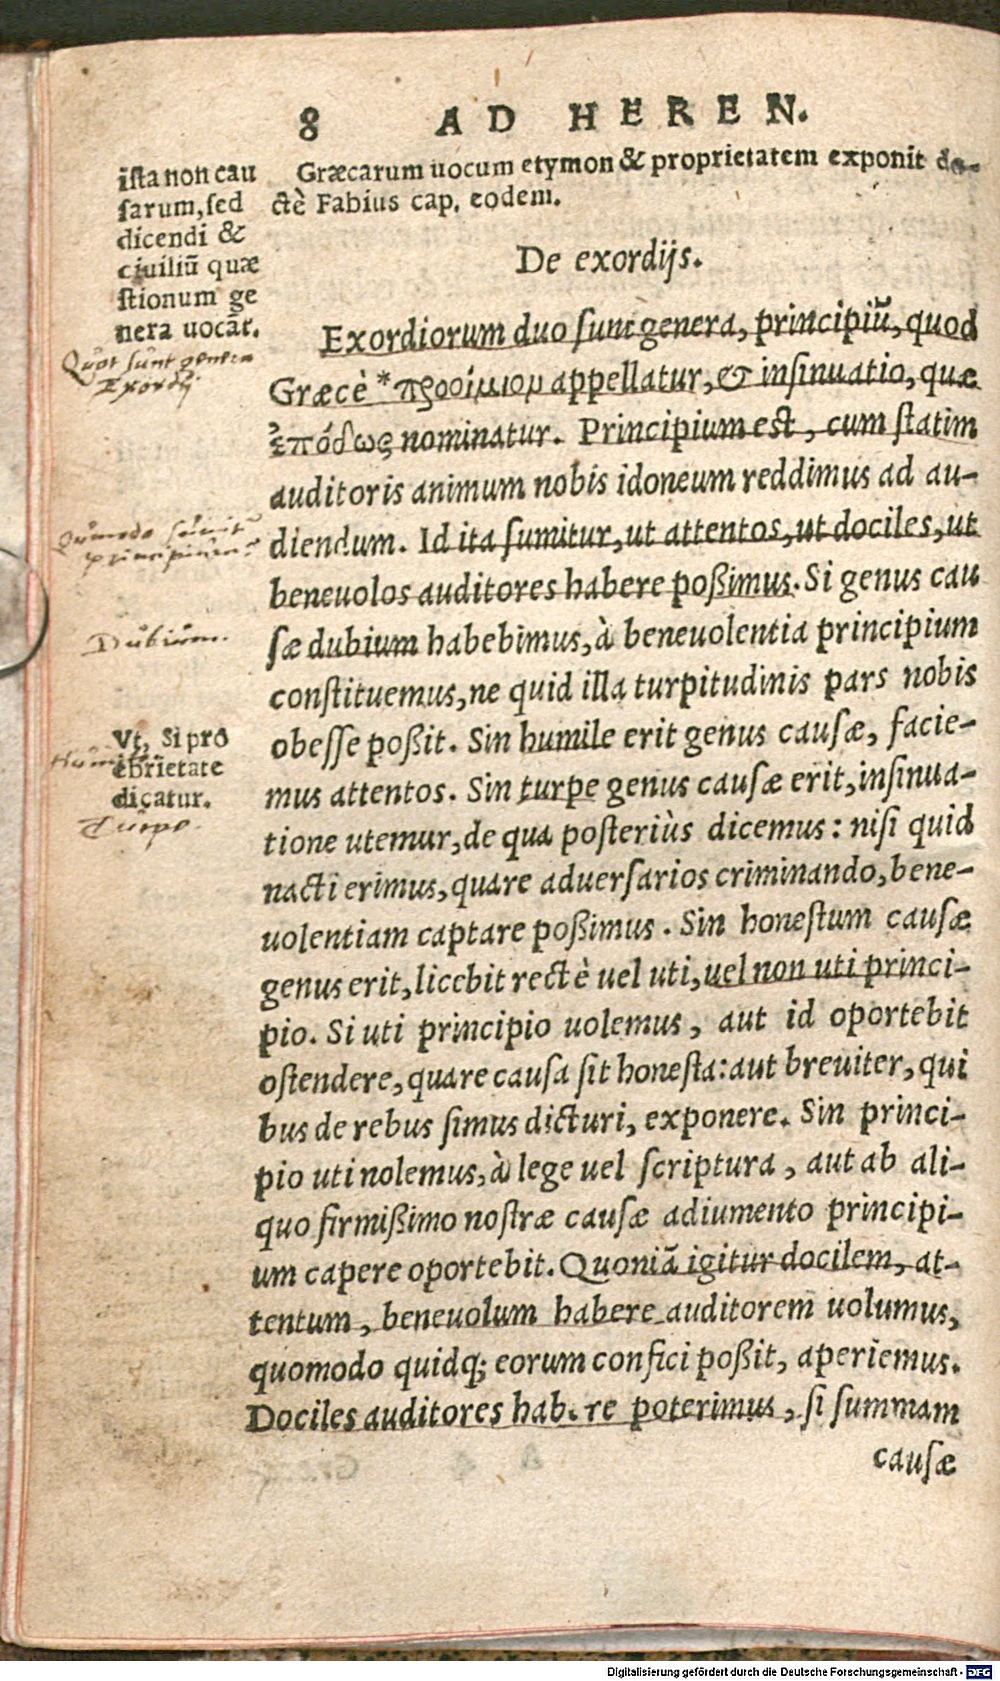 8 AD HEREN.
ista non cau
sarum, sed
dicendi &
ciuiliū quæ
stionum ge
nera uocāt.
Quot sunt genera
Exordij.
Quomodo sumit᷑
principium.
Dubium.
Vt, Si pro
ebrietate
dicatur.
Humile
Turpe.
Græcarum uocum etymon & proprietatem exponit do-
ctè Fabius cap. eodem.
De exordijs.
Exordiorum duo sunt genera, principiū, quod
Græcè *προοίμιομ appellatur, & insinuatio, quæ
ἔπόδως nominatur. Principium est, cum statim
auditoris animum nobis idoneum reddimus ad au-
diendum. Id ita sumitur, ut attentos, ut dociles, ut
beneuolos auditores habere poßimus. Si genus cau
sæ dubium habebimus, à beneuolentia principium
constituemus, ne quid illa turpitudinis pars nobis
obesse poßit. Sin humile erit genus causæ, facie-
mus attentos. Sin turpe genus causæ erit, insinua-
tione utemur, de qua posteriùs dicemus: nisi quid
nacti erimus, quare aduersarios criminando, bene-
uolentiam captare poßimus. Sin honestum causæ
genus erit, licebit rectè uel uti, uel non uti princi-
pio. Si uti principio uolemus, aut id oportebit
ostendere, quare causa sit honesta: aut breuiter, qui
bus de rebus simus dicturi, exponere. Sin princi-
pio uti nolemus, à lege uel scriptura, aut ab ali-
quo firmißimo nostræ causæ adiumento principi-
um capere oportebit. Quoniā igitur docilem, at-
tentum, beneuolum habere auditorem uolumus,
quomodo quidq; eorum confici poßit, aperiemus.
Dociles auditores habere poterimus, si summam
causæ
Digitalisierung gefördert durch die Deutsche Forschungsgemeinschaft - DFG